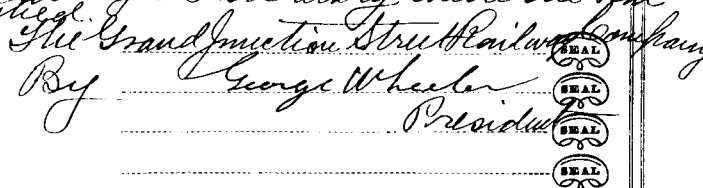 The Grand Junction Street Railway Company SEAL
By George Wheeler SEAL
President SEAL
SEAL